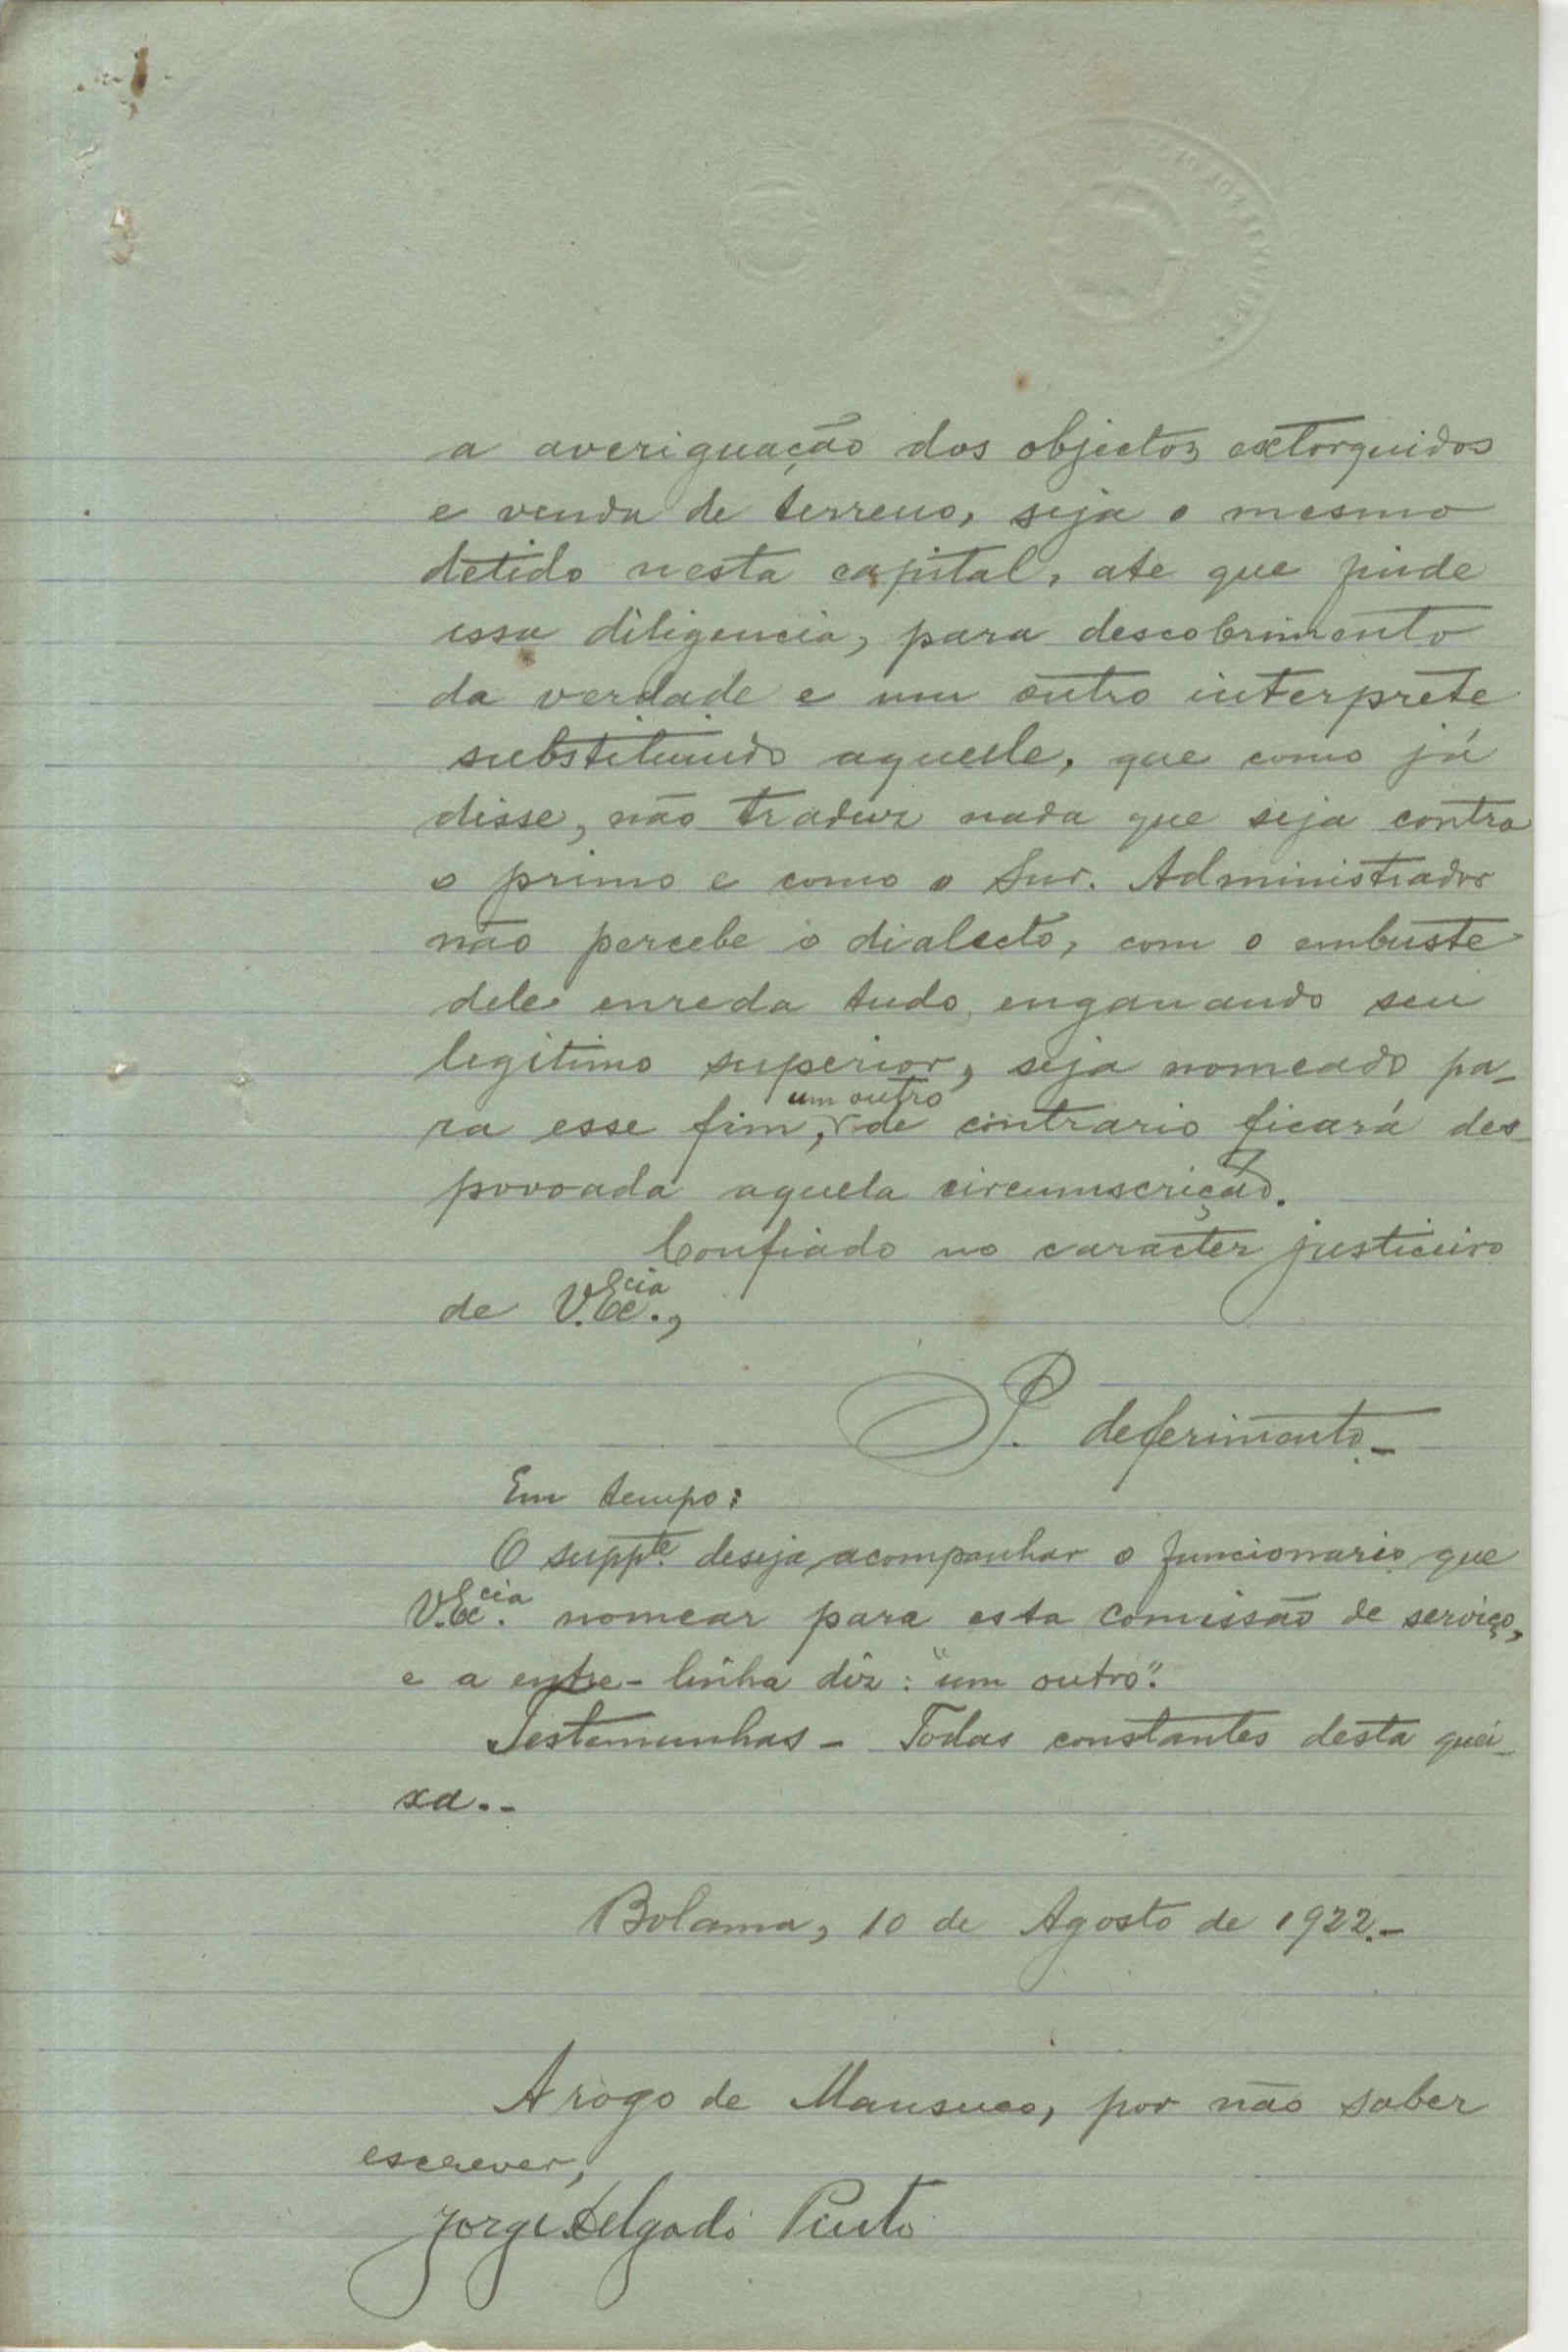 a averiguação dos objectos extorquidos
e venda de terreno, seja o mesmo
detido nesta capital, ate que finde
essa diligencia, para descobrimento
da verdade e um outro interprete
substituindo aquele, que como já
disse, não traduz nada que seja contra
o primo e como o Snr. Administrador
não percebe o dialecto, com o embuste
dele enreda tudo, enganando seu
legitimo superior, seja nomeado pa-
um outro
ra esse fim, de contrario ficará des-
povoada aquela circumscrição.
Confiado no caracter justiceiro
de V. Ex.cia,
P. deferimento.-
Em tempo:
O suppte. deseja acompanhar o funcionario que
V. Ex.cia nomear para esta comissão de serviço,
e a entre-linha diz: "um outro".
Testemunhas - Todas constantes desta quei-
xa.-
Bolama, 10 de Agosto de 1922.-
A rogo de Mansuco, por não saber
escrever,
Jorge Delgado Pinto